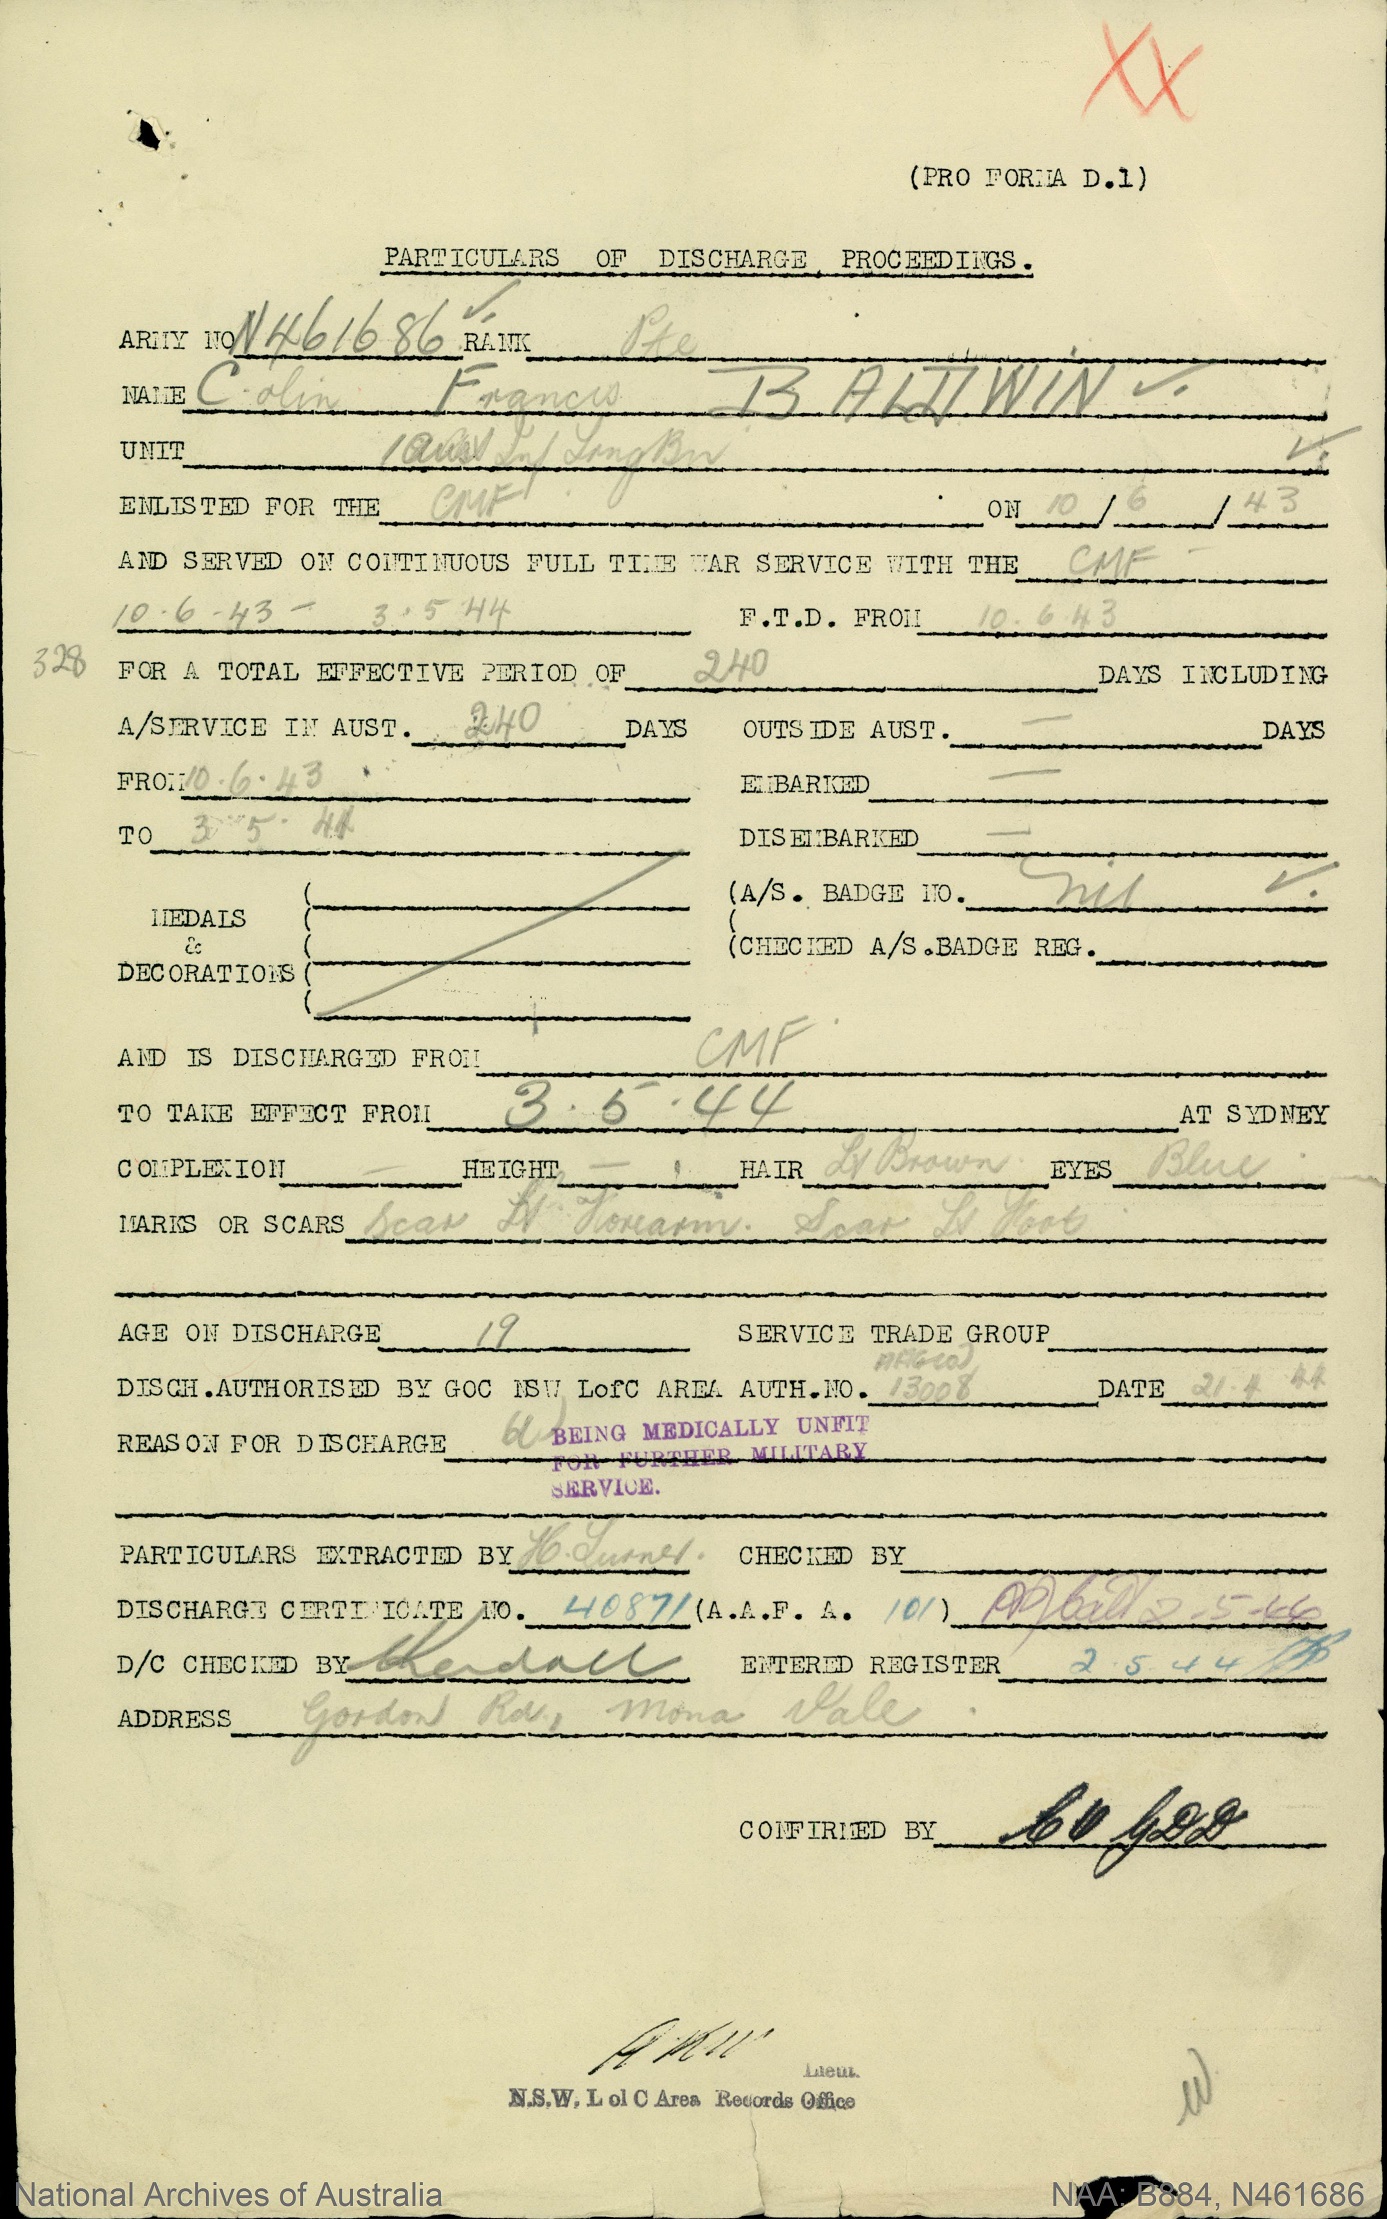 XX
(PRO FORMA D.1)
PARTICULARS OF DISCHARGE PROCEEDINGS.
ARMY NO N461686 RANK Pte
NAME Colin Francis BALDWIN
UNIT 1 Aust Inf Trng Bn
ENLISTED FOR THE CMF ON 10/6/43
AND SERVED ON CONTINUOUS FULL TIME WAR SERVICE WITH THE CMF -
10.6.43 - 3.5.44 F.T.D. FROM 10.6.43
328 FOR A TOTAL EFFECTIVE PERIOD OF 240 DAYS INCLUDING
A/SERVICE IN AUST. 240 DAYS OUTSIDE AUST. — DAYS
FROM 10.6.43 EMBARKED —
TO 3.5.44 DISEMBARKED —
(A/S. BADGE NO. Nil
MEDALS & DECORATIONS (CHECKED A/S.BADGE REG.
AND IS DISCHARGED FROM CMF
TO TAKE EFFECT FROM 3.5.44 AT SYDNEY
COMPLEXION — HEIGHT — HAIR Lt Brown EYES Blue
MARKS OR SCARS Scar Lt Forearm. Scar Lt Foot
AGE ON DISCHARGE 19 SERVICE TRADE GROUP
DISCH.AUTHORISED BY GOC NSW LofC AREA AUTH.NO. 13008 DATE 21.4.44
REASON FOR DISCHARGE BEING MEDICALLY UNFIT
FOR FURTHER MILITARY
SERVICE.
PARTICULARS EXTRACTED BY H. Turner. CHECKED BY
DISCHARGE CERTIFICATE NO. 40871 (A.A.F. A. 101) 2-5-44
D/C CHECKED BY Kendall ENTERED REGISTER 2.5.44
ADDRESS Gordon Rd., Mona Vale
CONFIRMED BY CO GDD
Lieut.
N.S.W. L of C Area Records Office
National Archives of Australia NAA: B884, N461686